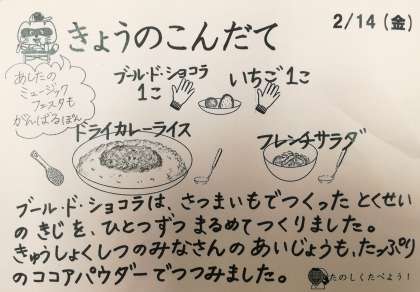 きょうのこんだて
2/14（金）
あしたの
ミュージック
フェスタも
がんばるぽん
ブール・ド・ショコラ
1こ
いちご1こ
ドライカレーライス
フレンチサラダ
ブール・ド・ショコラは、さつまいもでつくった とくせい
の きじを、ひとつずつ まるめてつくりました。
きゅうしょくしつのみなさんの あいじょうも、たっぷり
のココアパウダーでつつみました。
たのしくたべよう！